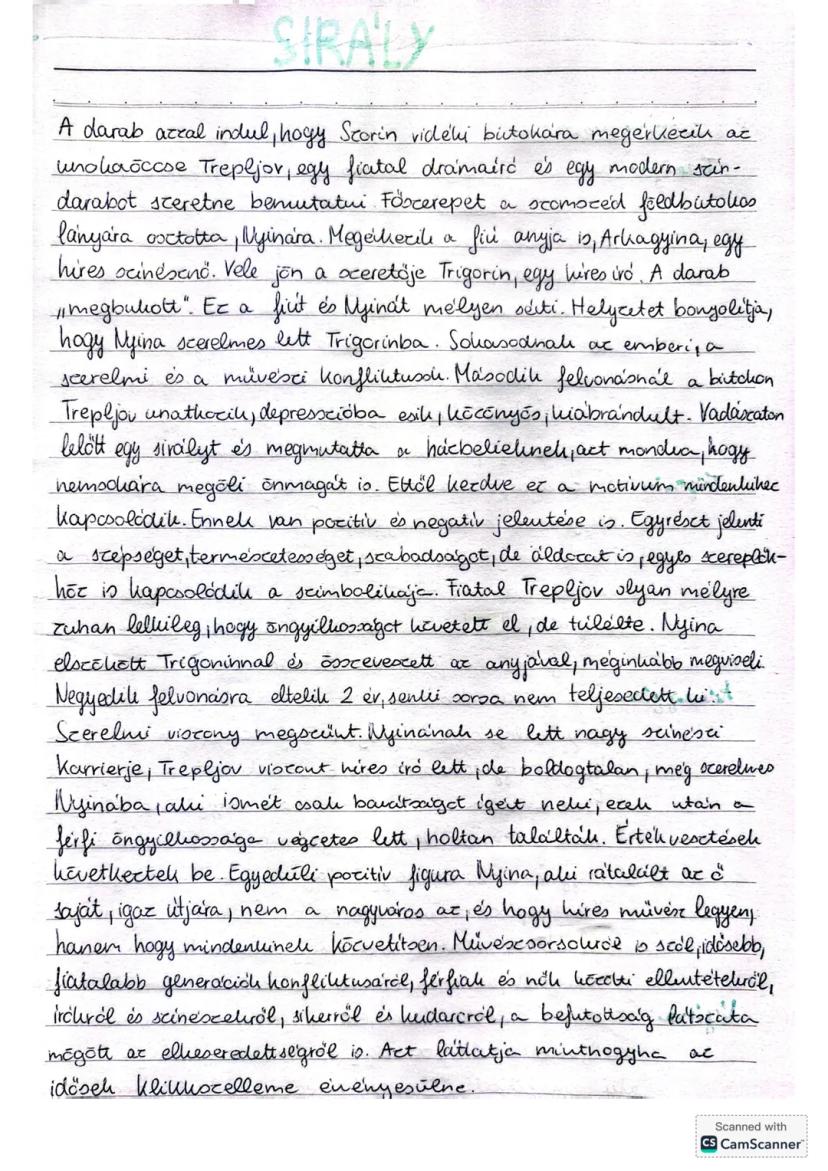 SIRÁLY
A darab azzal indul, hogy Szorin vidéki birtokára megérkezik az
unokaöccse Trepljov, egy fiatal drámaíró és egy modern szín-
darabot szeretne bemutatni. Főszerepet a szomszéd földbirtokos
lányára osztotta, Nyinára. Megérkezik a fiú anyja is, Arkagyina, egy
híres színésznő. Vele jön a szeretője Trigorin, egy híres író. A darab
„megbukott". Ez a fiút és Nyinát mélyen sérti. Helyzetet bonyolítja,
hogy Nyina szerelmes lett Trigorinba. Sokasodnak az emberi, a
szerelmi és a művészi konfliktusok. Második felvonásnál a birtokon
Trepljov unatkozik, depresszióba esik, közönyös, kiábrándult. Vadászaton
lelőtt egy sirályt és megmutatta a házbelieknek, azt mondva, hogy
nemsokára megöli önmagát is. Ettől kezdve ez a motívum mindenkihez
kapcsolódik. Ennek van pozitív és negatív jelentése is. Egyrészt jelenti
a szépséget, természetességet, szabadságot, de áldozat is, egyes szereplők-
höz is kapcsolódik a szimbolikája. Fiatal Trepljov olyan mélyre
zuhan lelkileg, hogy öngyilkosságot követett el, de túlélte. Nyina
elszökött Trigoninnal és összeveszett az anyjával, méginkább megviseli.
Negyedik felvonásra eltelik 2 év, senki sorsa nem teljesedett ki.
Szerelmi viszony megszűnt. Nyinának se lett nagy színészi
karrierje, Trepljov viszont híres író lett, de boldogtalan, még szerelmes
Nyinába, aki ismét csak barátságot ígért neki, ezek után a
férfi öngyilkossága végzetes lett, holtan találták. Értékvesztések
következtek be. Egyedüli pozitív figura Nyina, aki rátalált az ő
saját, igaz útjára, nem a nagyváros az, és hogy híres művész legyen,
hanem hogy mindenkinek közvetítsen. Művészsorsokról is szól, idősebb,
fiatalabb generációk konfliktusáról, férfiak és nők közötti ellentétekről,
írókról és színészekről, sikerről és kudarcról, a befutottság látszata
mögött az elkeseredettségről is. Azt láttatja minthogyha az
idősek klikkszelleme érvényesülne.
Scanned with
CS CamScanner